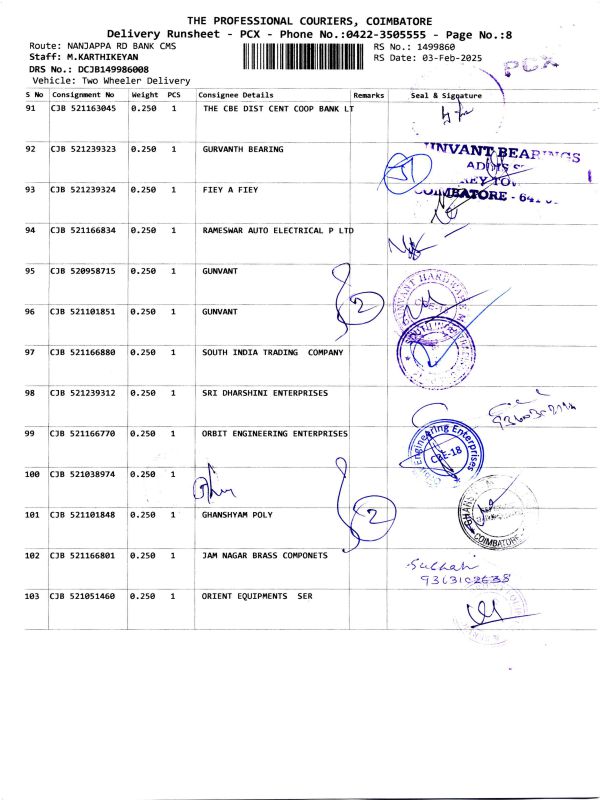 THE PROFESSIONAL COURIERS, COIMBATORE
Delivery Runsheet - PCX - Phone No.:0422-3505555 - Page No.:8
Route: NANJAPPA RD BANK CMS
RS No.: 1499860
Staff: M.KARTHIKEYAN
RS Date: 03-Feb-2025
DRS No.: DCJB149986008
Vehicle: Two Wheeler Delivery
PCX
S No Consignment No Weight PCS Consignee Details Remarks Seal & Signature
91 CJB 521163045 0.250 1 THE CBE DIST CENT COOP BANK LT
92 CJB 521239323 0.250 1 GURVANTH BEARING
NVANT BEARINGS
93 CJB 521239324 0.250 1 FIEY A FIEY
COIMBATORE - 641
94 CJB 521166834 0.250 1 RAMESWAR AUTO ELECTRICAL P LTD
95 CJB 520958715 0.250 1 GUNVANT
2
96 CJB 521101851 0.250 1 GUNVANT
97 CJB 521166880 0.250 1 SOUTH INDIA TRADING COMPANY
98 CJB 521239312 0.250 1 SRI DHARSHINI ENTERPRISES
99 CJB 521166770 0.250 1 ORBIT ENGINEERING ENTERPRISES
Engineering Enterprises
CBE-18
100 CJB 521038974 0.250 1
101 CJB 521101848 0.250 1 GHANSHYAM POLY
2
COIMBATORE
102 CJB 521166801 0.250 1 JAM NAGAR BRASS COMPONETS
103 CJB 521051460 0.250 1 ORIENT EQUIPMENTS SER